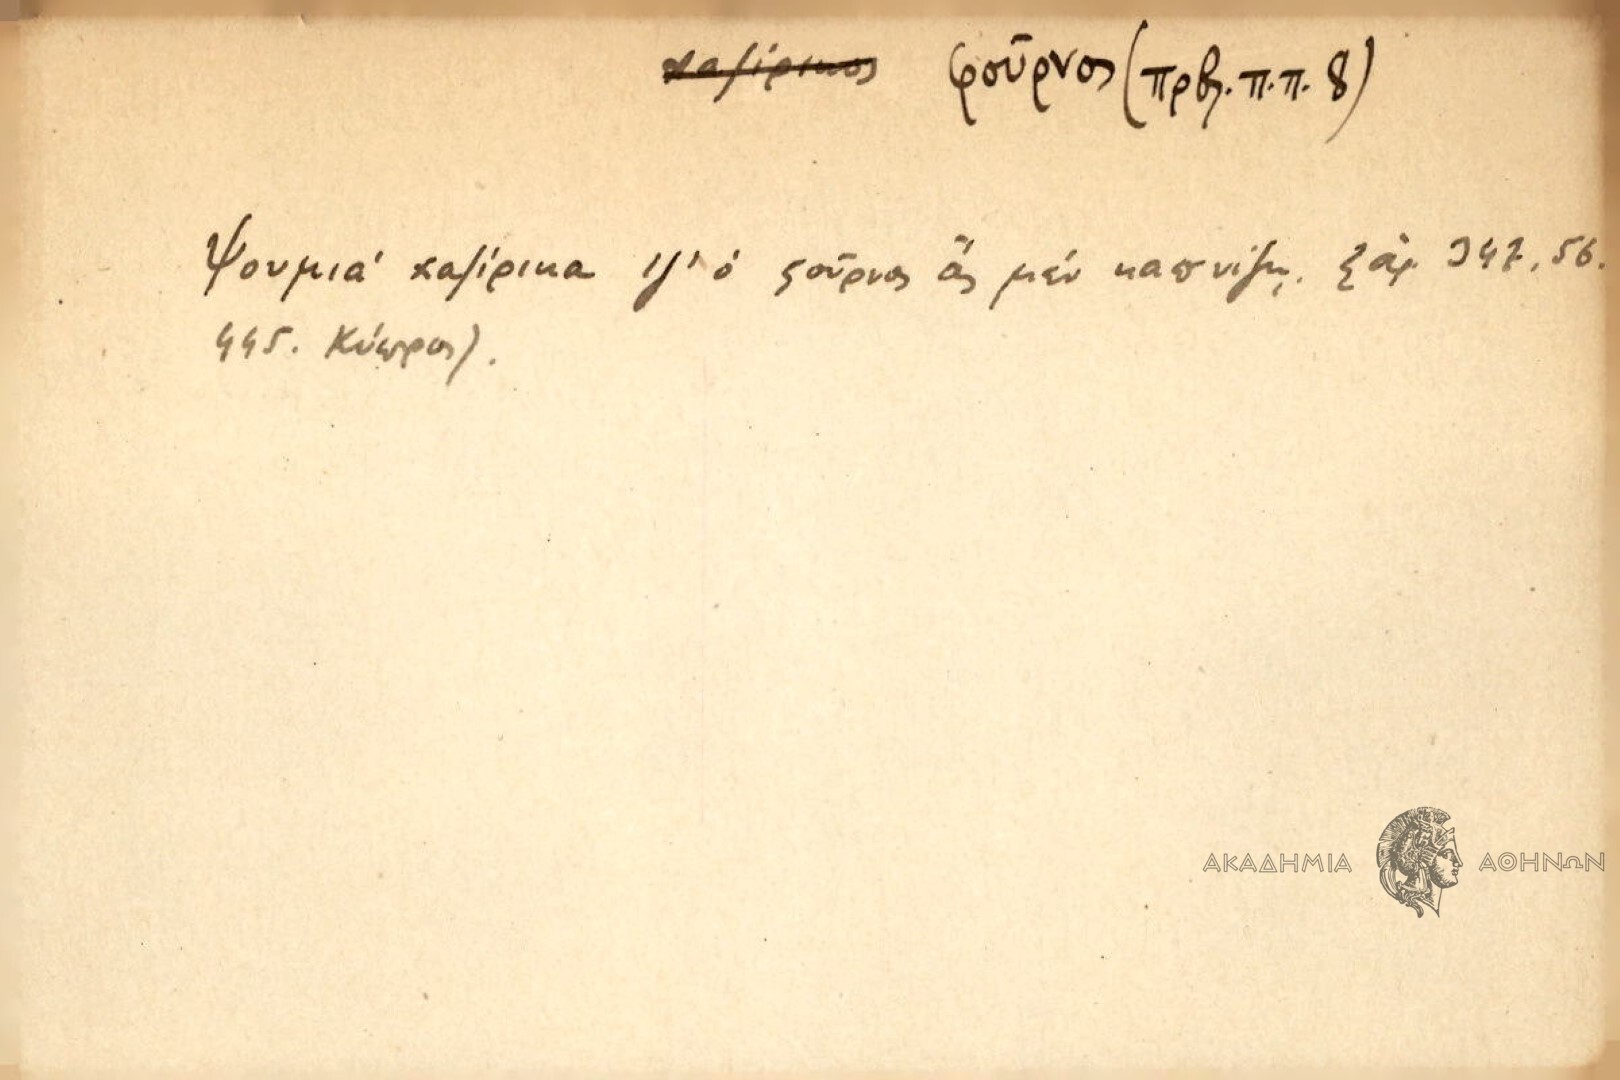 χαζίρικος φοῦρνος (πρβλ. π.π. 8)
Ψουμιά χαζίρικα τζ' ὁ φοῦρνος ἄς μέν καπνίζῃ. 347, 56.
445. Κύπρος).
ΑΚΑΔΗΜΙΑ ΑΘΗΝΩΝ